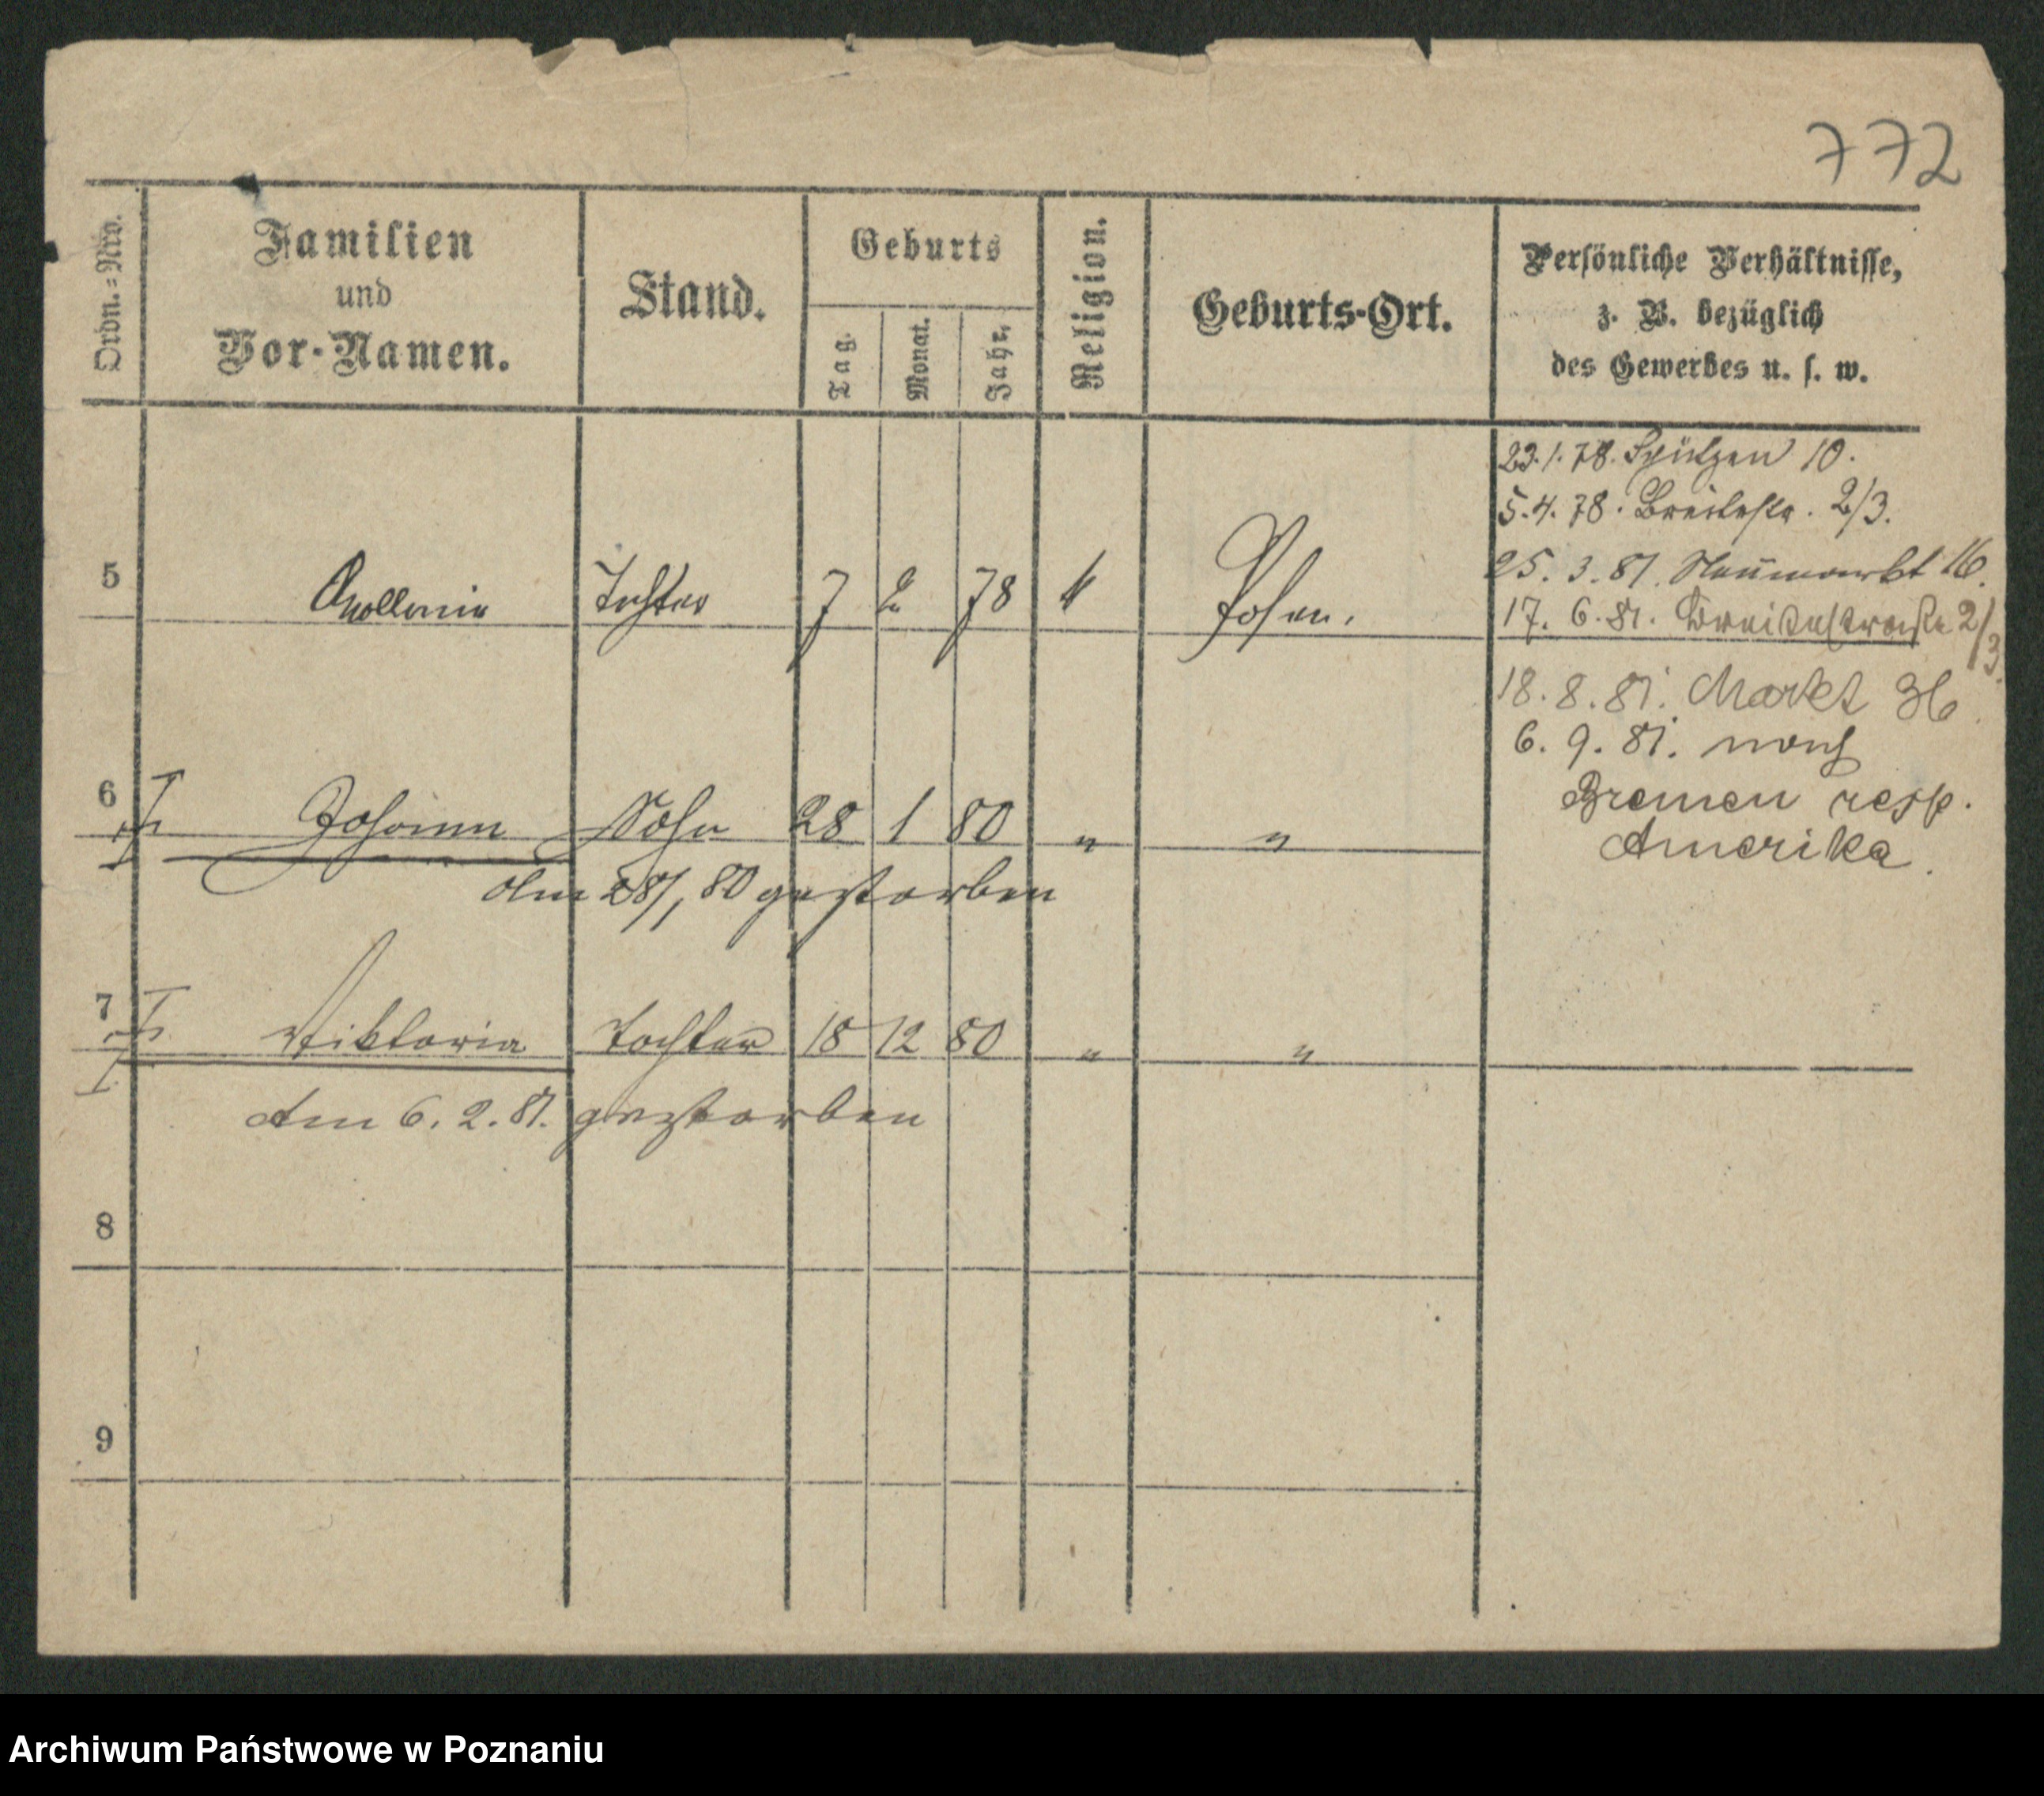 772
Ordn.-Nro.
Familien
und
Vor-Namen.
Stand.
Geburts
Tag.
Monat.
Jahr.
Religion.
Geburts-Ort.
Persönliche Verhältnisse,
z. B. bezüglich
des Gewerbes u. s. w.
23.1.78. Schützen 10.
5.4.78. Breitestr. 2/3.
25.3.81. Neumarkt 16.
17.6.81. Breitestraße 2/3.
18.8.81. Markt 36.
6.9.81. nach
Bremen resp.
Amerika.
5 Apollonia Tochter 7 2 78 k Posen.
6 Johann Sohn 28 1 80 " "
Am 28/1 80 gestorben
7 Viktoria Tochter 18 12 80 " "
Am 6.2.81. gestorben
8
9
Archiwum Państwowe w Poznaniu